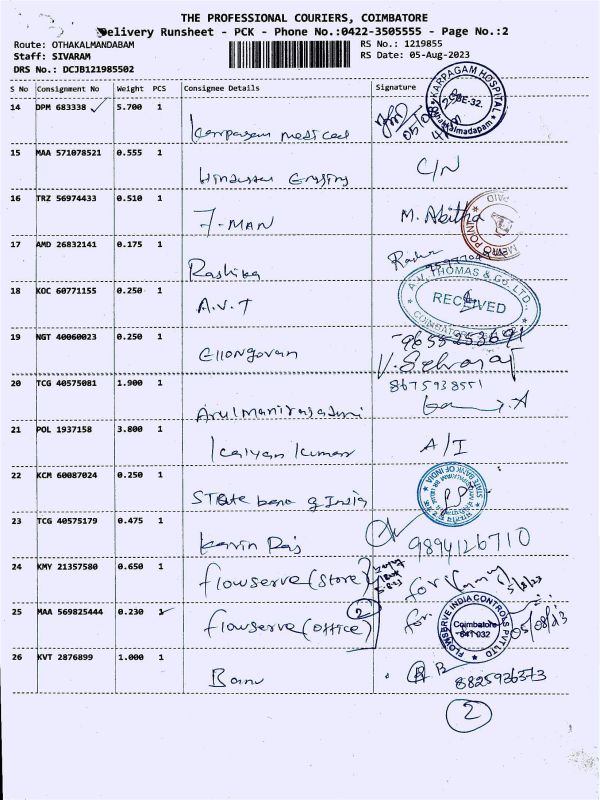 THE PROFESSIONAL COURIERS, COIMBATORE
Delivery Runsheet - PCK - Phone No.:0422-3505555 - Page No.:2
Route: OTHAKALMANDABAM RS No.: 1219855
Staff: SIVARAM RS Date: 05-Aug-2023
DRS No.: DCJB121985502
S No Consignment No Weight PCS Consignee Details Signature
14 DPM 683338 5.700 1 Karpagam medical
KARPAGAM HOSPITAL
CBE-32.
15 MAA 571078521 0.555 1 C/N
16 TRZ 56974433 0.510 1 7-MAN M. Abitha
PAID
METRO POINT
17 AMD 26832141 0.175 1 Rashika
18 KOC 60771155 0.250 1 A.V.T
A.V. THOMAS & CO. LTD.,
RECEIVED
COIMBATORE
19 NGT 40060023 0.250 1 Ellongovan 9655253691
V. Selvaraj
20 TCG 40575081 1.900 1 8675938551
21 POL 1937158 3.800 1 Kalyan Kumar A/I
22 KCM 60087024 0.250 1 State bank of India
STATE BANK OF INDIA
23 TCG 40575179 0.475 1 Kavin Raj 9894126710
24 KMY 21357580 0.650 1 flowserve (store) for
25 MAA 569825444 0.230 1 flowserve (office) 2 for 05/08/23
FLOWSERVE INDIA CONTROLS PVT LTD
Coimbatore
641 032
26 KVT 2876899 1.000 1 Banu 8825936373
2